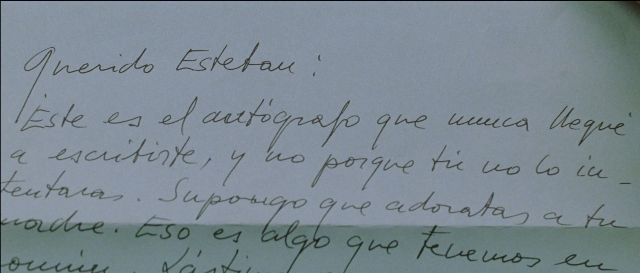 Querido Esteban:
Este es el autógrafo que nunca llegué
a escribirte, y no porque tú no lo in-
tentaras. Supongo que adorabas a tu
madre. Eso es algo que tenemos en
común.